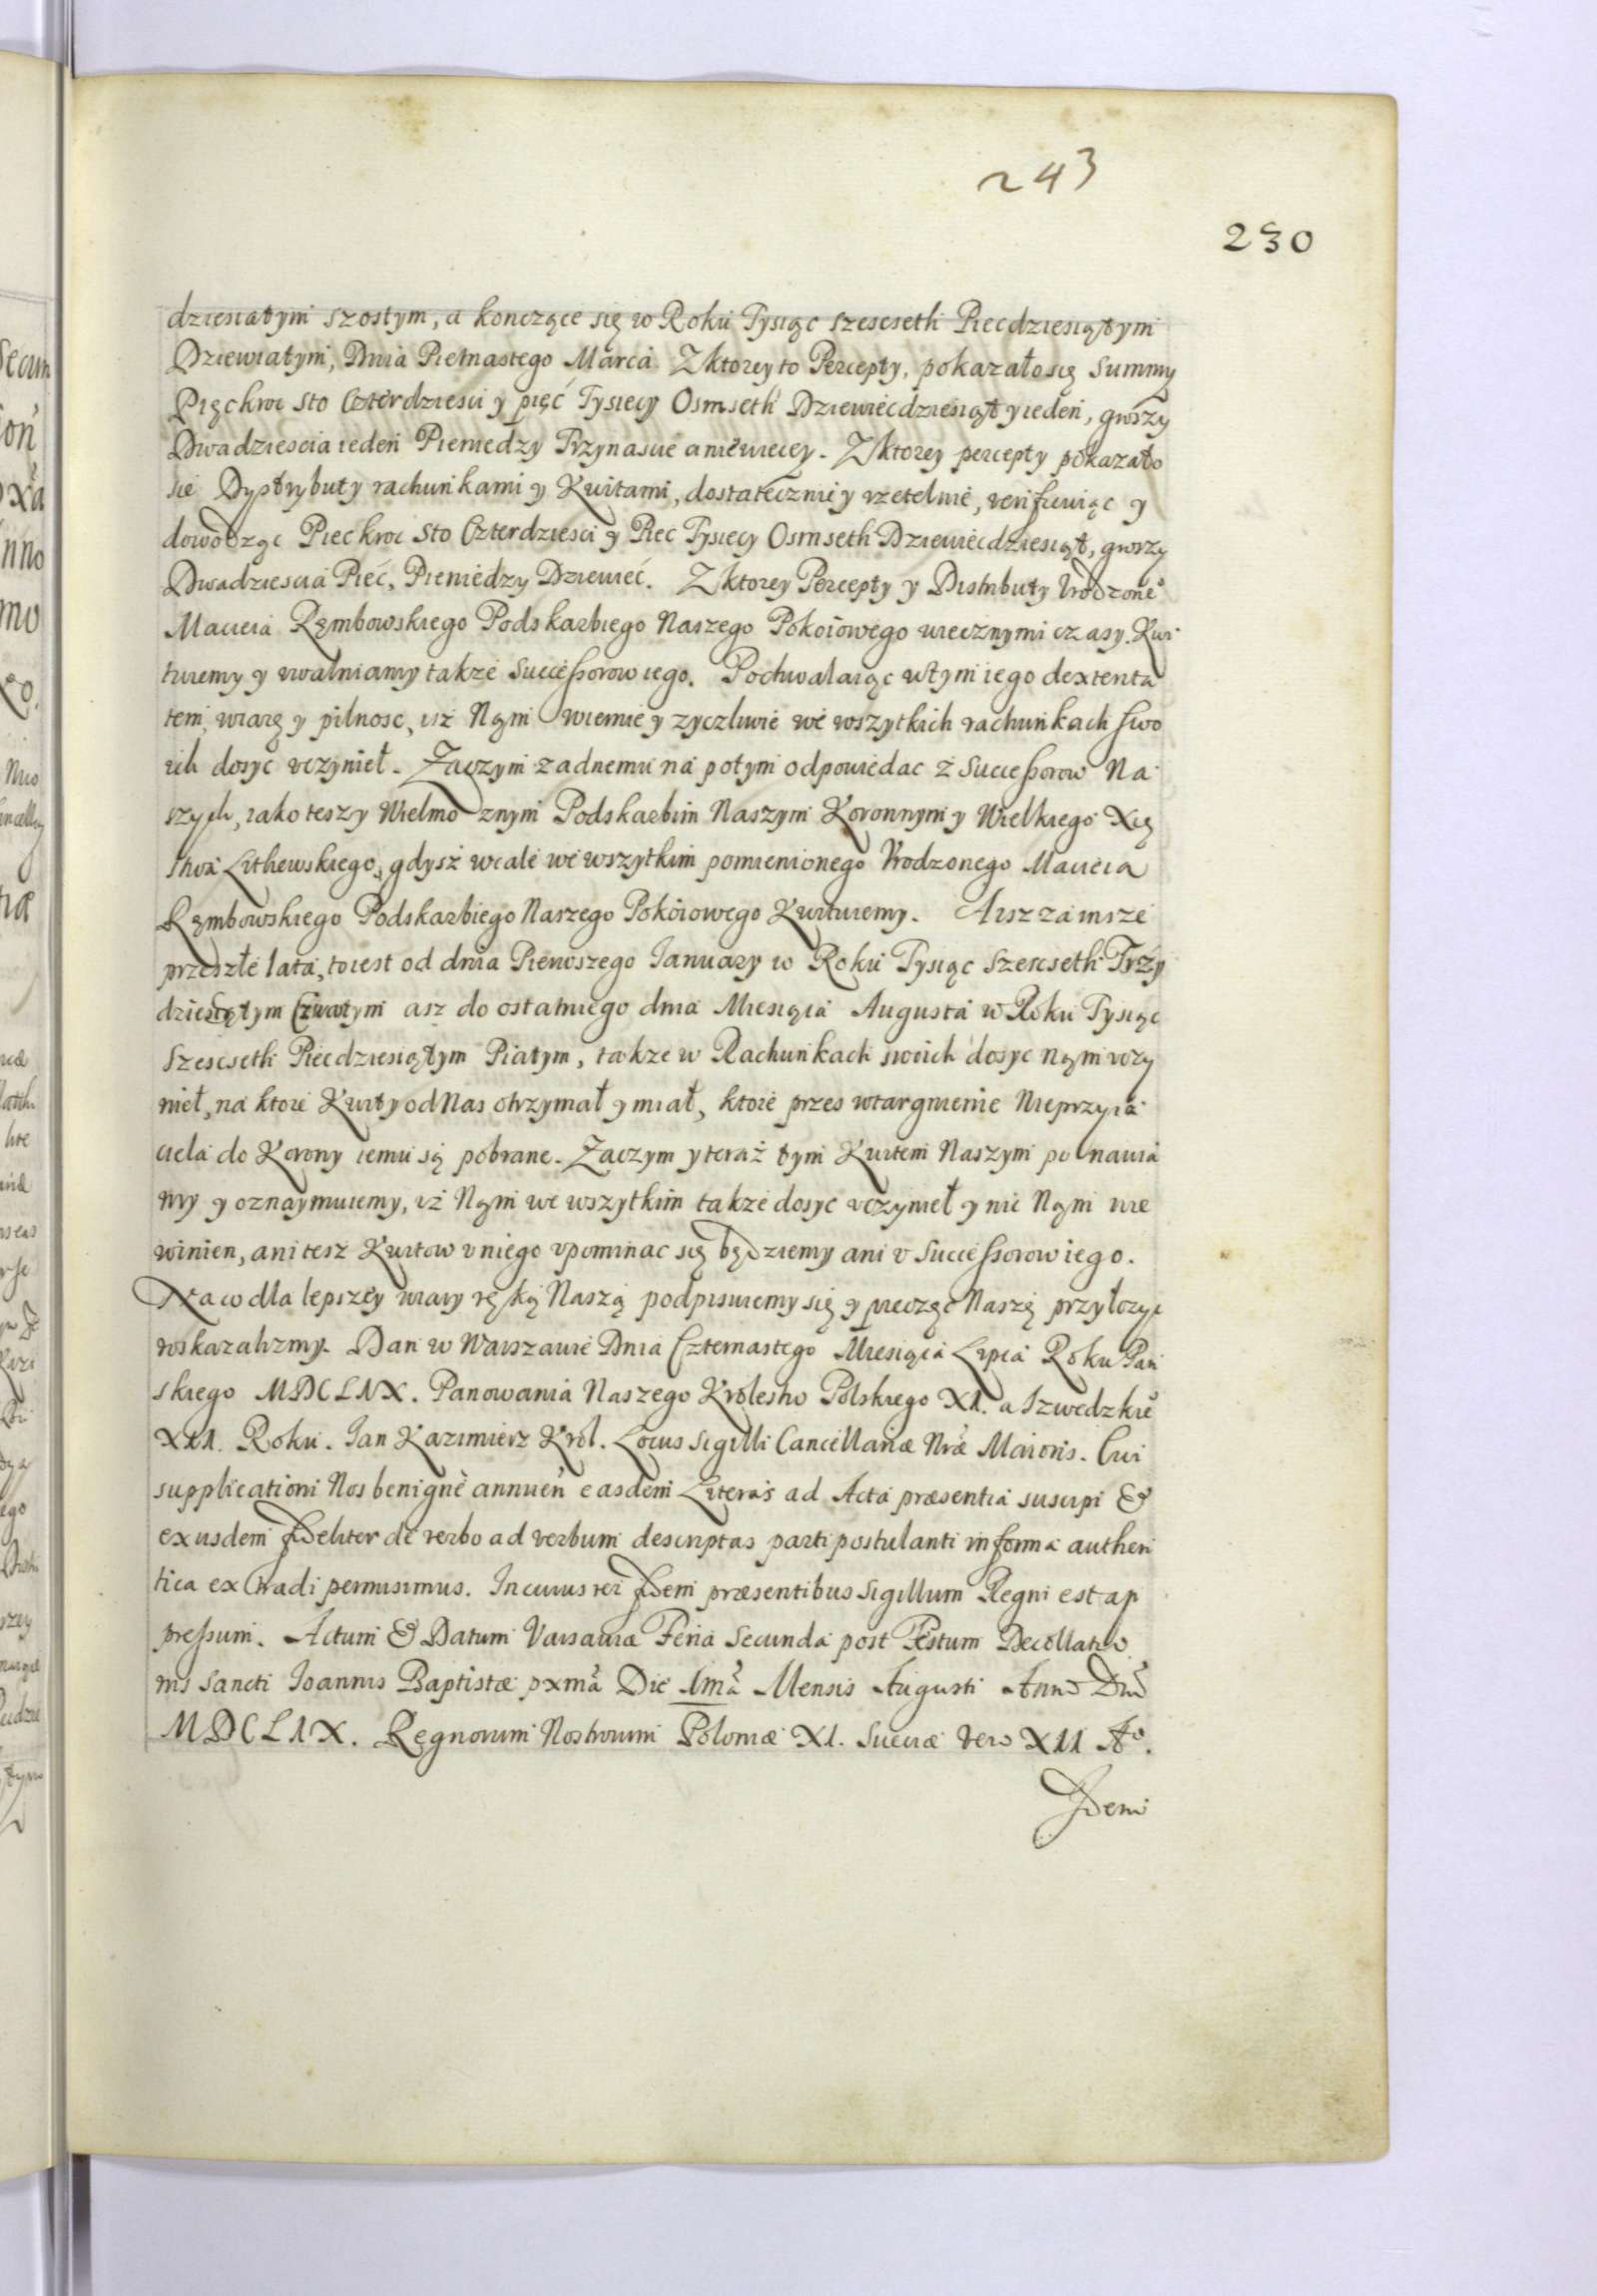 243
230
dziesiatym szostym, a konczące się w Roku Tysiąc szescseth Piecdziesiątym
Dziewiatym, Dnia Pietnastego Marca. Z ktorey to Percepty, pokazało się Summy
Pięckroc Sto Czterdziesci y pięć Tysiecy Osmseth Dziewiecdziesiąt y ieden, groszy
Dwadziescia ieden Pieniedzy Trzynascie a niewiecey. Z ktorey percepty pokazało
sie Dystrybuty rachunkami y Kwitami, dostatecznie y rzetelnie, verifikuiąc y
dowodząc Pieckroc Sto Czterdziesci y Piec Tysiecy Osmseth Dziewiecdziesiąt, groszy
Dwadziescia Pieć, Pieniedzy Dziewieć. Z ktorey Percepty y Distributy Vrodzone°
Macieia Ręmbowskiego Podskarbiego Naszego Pokoiowego wiecznymi czasy. Kwi
tuiemy y vwalniamy takze Successorow iego. Pochwalaiąc w tym iego dexterita
tem, wiarę y pilnosc, isz Nąm wiernie y zyczliwie we wszytkich rachunkach swo
ich dosyc vczynieł. Zaczym zadnemu na potym odpowiedac z Successorow Na
szych, iako teszy Wielmoznym Podskarbim Naszym Koronnym y Wielkiego Xię
stwa Lithewskiego, gdysz wcale we wszytkim pomienionego Vrodzonego Macieia
Ręmbowskiego Podskarbiego Naszego Pokoiowego Kwituiemy. A isz za insze
przeszłe lata, to iest od dnia Pierwszego January w Roku Tysiąc Szescseth Trzy
dziesiątym Czwartym asz do ostatniego dnia Miesiąca Augusta w Roku Tysiąc
Szescseth Piecdziesiątym Piatym, takze w Rachunkach swoich dosyc nąm vczy
nieł, na ktore Kwity od Nas otrzymał y miał, ktore przes wtargnienie Nieprzyia
ciela do Korony iemu są pobrane. Zaczym y teraz tym Kwitem Naszym ponawia
my y oznaymuiemy, iż Nąm we wszytkim takze dosyc vczynieł y nic Nąm nie
winien, ani tesz Kwitow v niego vpominac się będziemy ani v Successorow iego.
Na co dla lepszey wiary ręką Naszą podpisuiemy się y pieczęć Naszę przyłozyc
roskazalizmy. Dan w Warszawie Dnia Czternastego Miesiąca Lipca Roku Pań
skiego MDCLIX. Panowania Naszego Krolestw Polskiego XI. a Szwedzkie°
XII. Roku. Jan Kazimierz Krol. Locus Sigilli Cancellariæ Nræ Maioris. Cui
supplicationi Nos benignè annuen easdem Literas ad Acta præsentia suscipi &
ex iisdem fideliter de verbo ad verbum descriptas parti postulanti in forma authen
tica extradi permisimus. In cuius rei fidem præsentibus Sigillum Regni est ap
pressum. Actum & Datum Varsaviæ Feria Secunda post Festum Decollatio
nis Sancti Joannis Baptistæ pxmā Die 1mā Mensis Augusti Anno Dni
MDCLIX. Regnorum Nostrorum Poloniæ XI. Sueciæ vero XII A°.
Idem